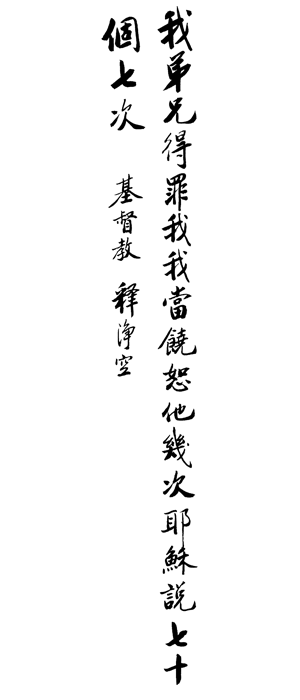 我弟兄得罪我我當饒恕他幾次耶穌說七十
個七次 基督教 釋淨空